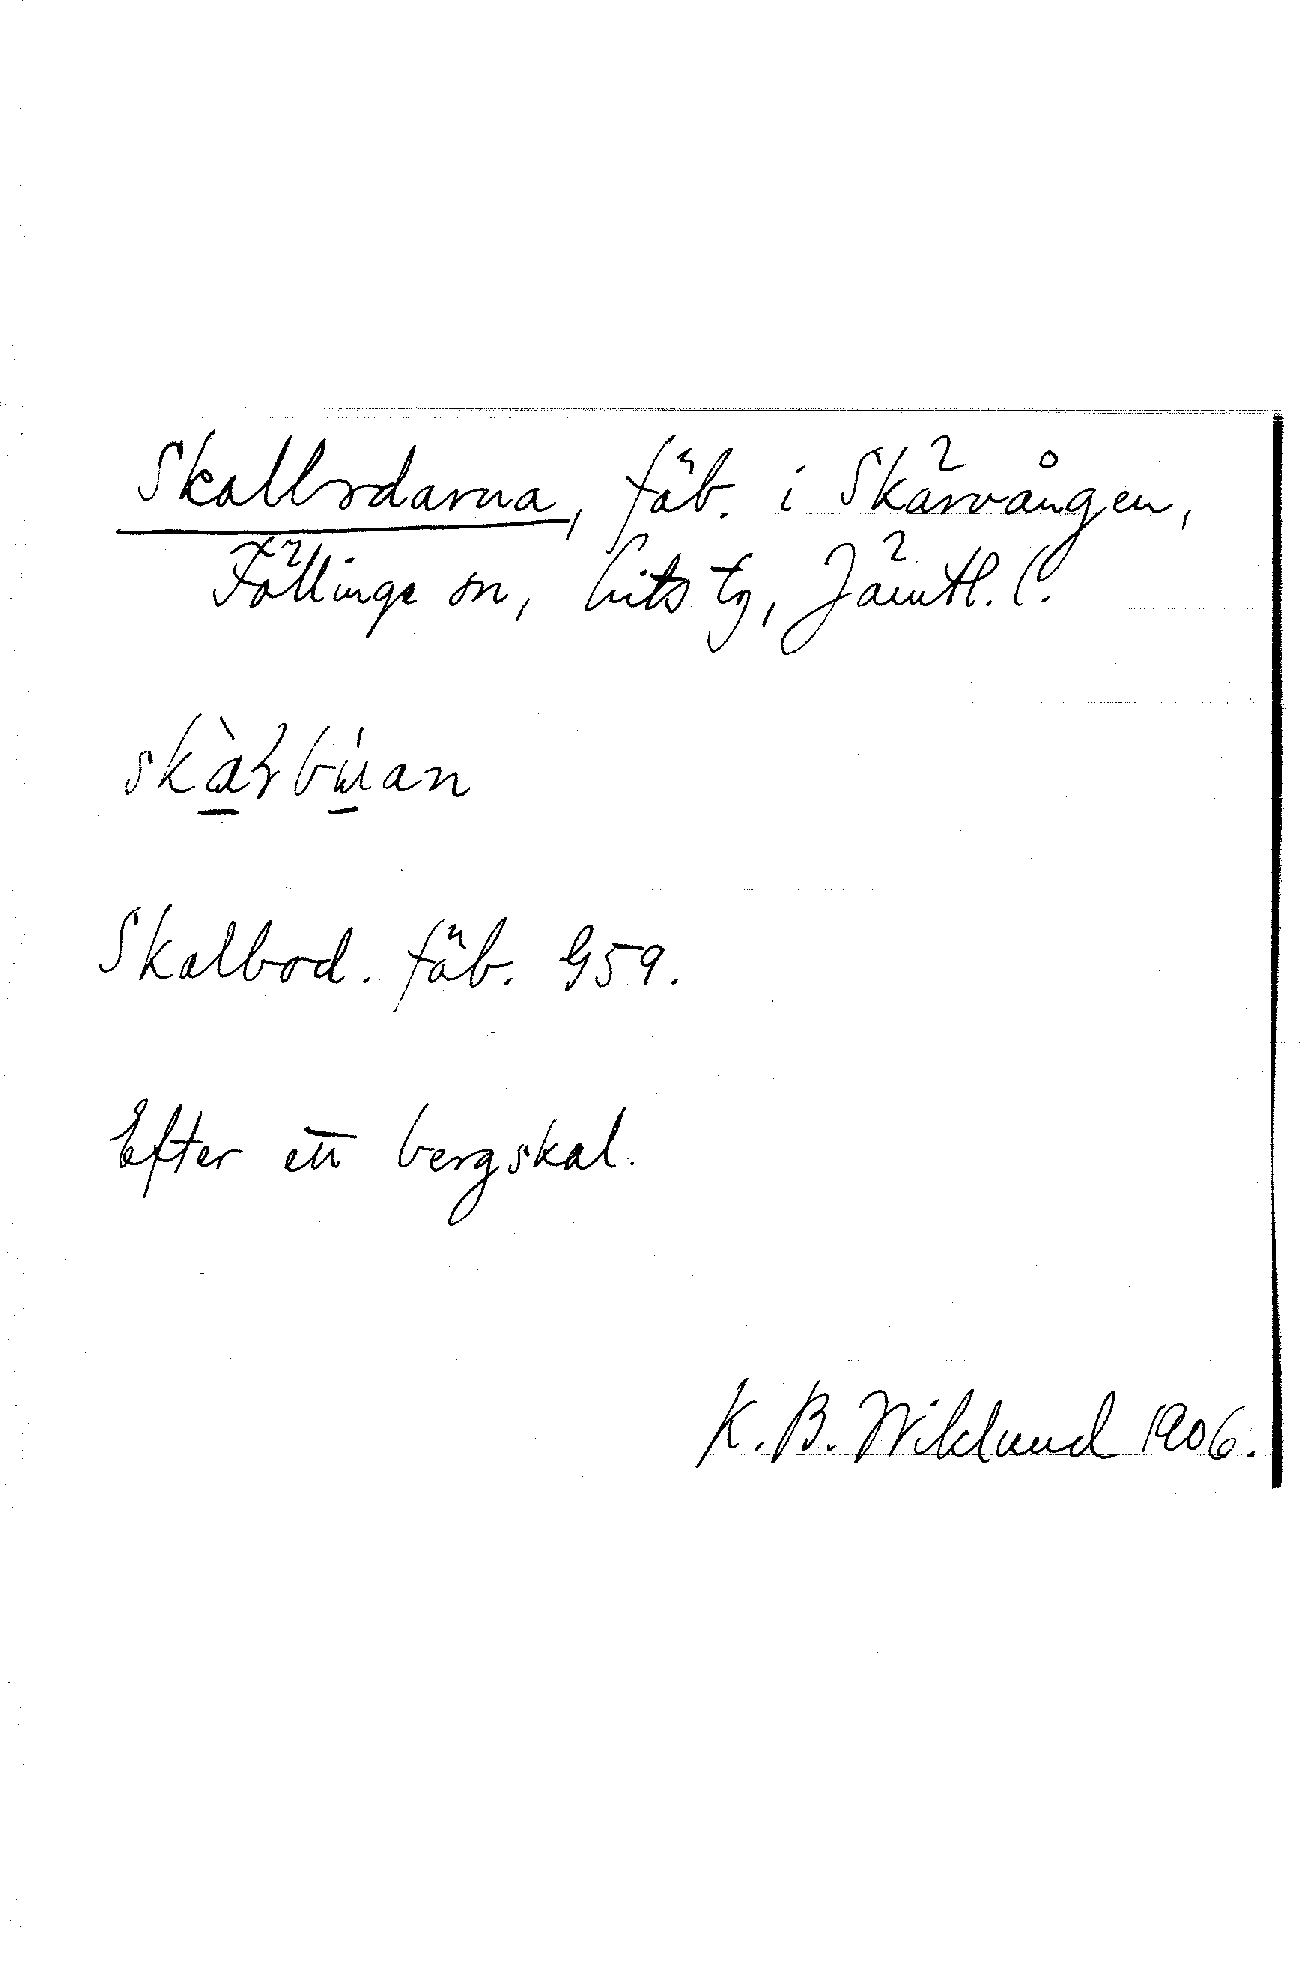 Skalbodarna, fäb. i Skärvången,
Föllinge sn, Lits tg, Jämtl. l.
skàɽbúan
Skalbod. fäb. G59.
Efter ett bergskal.
K. B. Wiklund 1906.